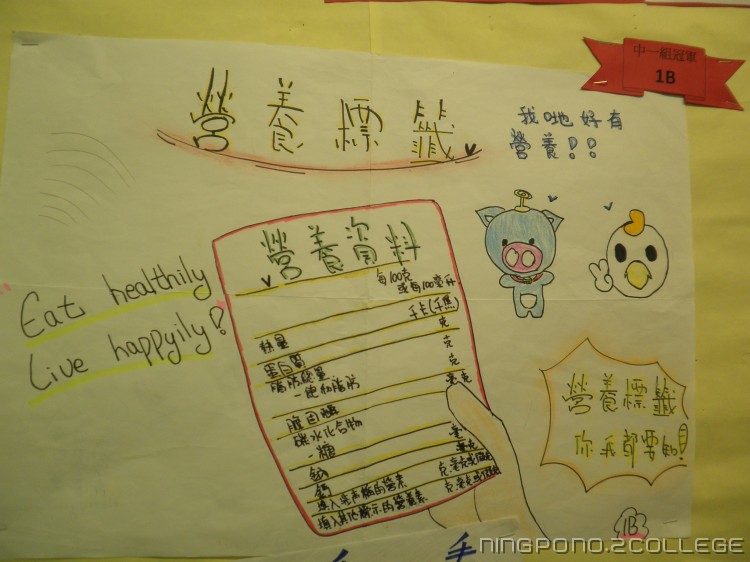 中一組冠軍
1B
營養標籤
我哋好有
營養!!
營養資料
每100克
或每100毫升
千卡(千焦)
熱量
克
蛋白質
克
脂肪總量
克
-飽和脂肪
毫克
膽固醇
碳水化合物
-糖
毫
鈉
毫克
鈣
克.毫克或
克.毫克或
Eat healthily
Live happyily!
營養標籤
你我都要知!
1B
手
NINGPONO.2COLLEGE